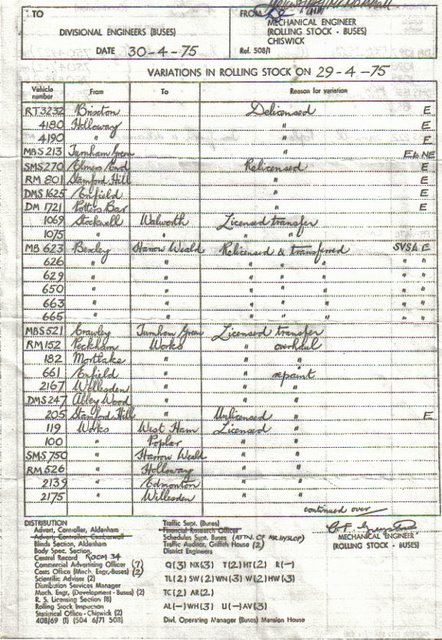 TO
DIVISIONAL ENGINEERS (BUSES)
DATE 30-4-75
FROM
MECHANICAL ENGINEER
(ROLLING STOCK - BUSES)
CHISWICK
Ref. 508/1
VARIATIONS IN ROLLING STOCK ON 29-4-75
Vehicle number From To Reason for variation
RT3232 Brixton Delicensed E
4180 Holloway " " E
4190 " " E
MBS 213 Turnham Green " E & NE
SMS270 Elmers End Relicensed E
RM 801 Stamford Hill " E
DMS 1625 Enfield " E
DM 1721 Potters Bar " E
1069 Stockwell Walworth Licensed transfer
1075 " " " "
MB 623 Bexley Harrow Weald Relicensed & transferred SVSL E
626 " " " " " "
629 " " " " " "
650 " " " " " "
663 " " " " " "
665 " " " " " "
MBS521 Crawley Turnham Green Licensed transfer
RM152 Peckham Works " overhaul
182 Mortlake " " "
661 Enfield " " repaint
2167 Willesden " " "
DMS247 Abbey Wood " " "
205 Stamford Hill " Unlicensed " E
119 Works West Ham Licensed "
100 " Poplar " "
SMS750 " Harrow Weald " "
RM526 " Holloway " "
2139 " Edmonton " "
2175 " Willesden " "
continued over
DISTRIBUTION
Advert, Controller, Aldenham
Advert, Controller, Camberwell
Blinds Section, Aldenham
Body Spec. Section,
Central Record ROOM 34
Commercial Advertising Officer (7)
Costs Office (Mech. Engr, Buses) (2)
Scientific Adviser (2)
Distribution Services Manager
Mech. Engr, (Development - Buses) (2)
R. S. Licensing Section (8)
Rolling Stock Inspection
Statistical Office - Chiswick (2)
408/69 (1) (504 6/71 508)
Traffic Supt. (Buses)
Financial Research Officer
Schedules Supt. Buses (ATTN. OF MR HYSLOP)
Traffic Auditor, Griffith House (2)
District Engineers
Q(3) NX(3) T(2) HT(2) R(-)
TL(2) SW(2) WN(3) W(2) HW(3)
TC(2) AR(2)
AL(-) WH(3) U(-) AV(3)
Divl. Operating Manager (Buses) Mansion House
MECHANICAL ENGINEER
(ROLLING STOCK - BUSES)